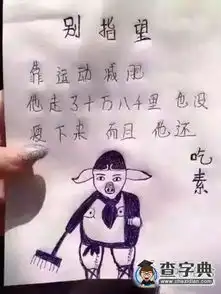 别指望
靠运动减肥
他走了十万八千里也没
瘦下来 而且他还
吃素
查字典
www.chazidian.com